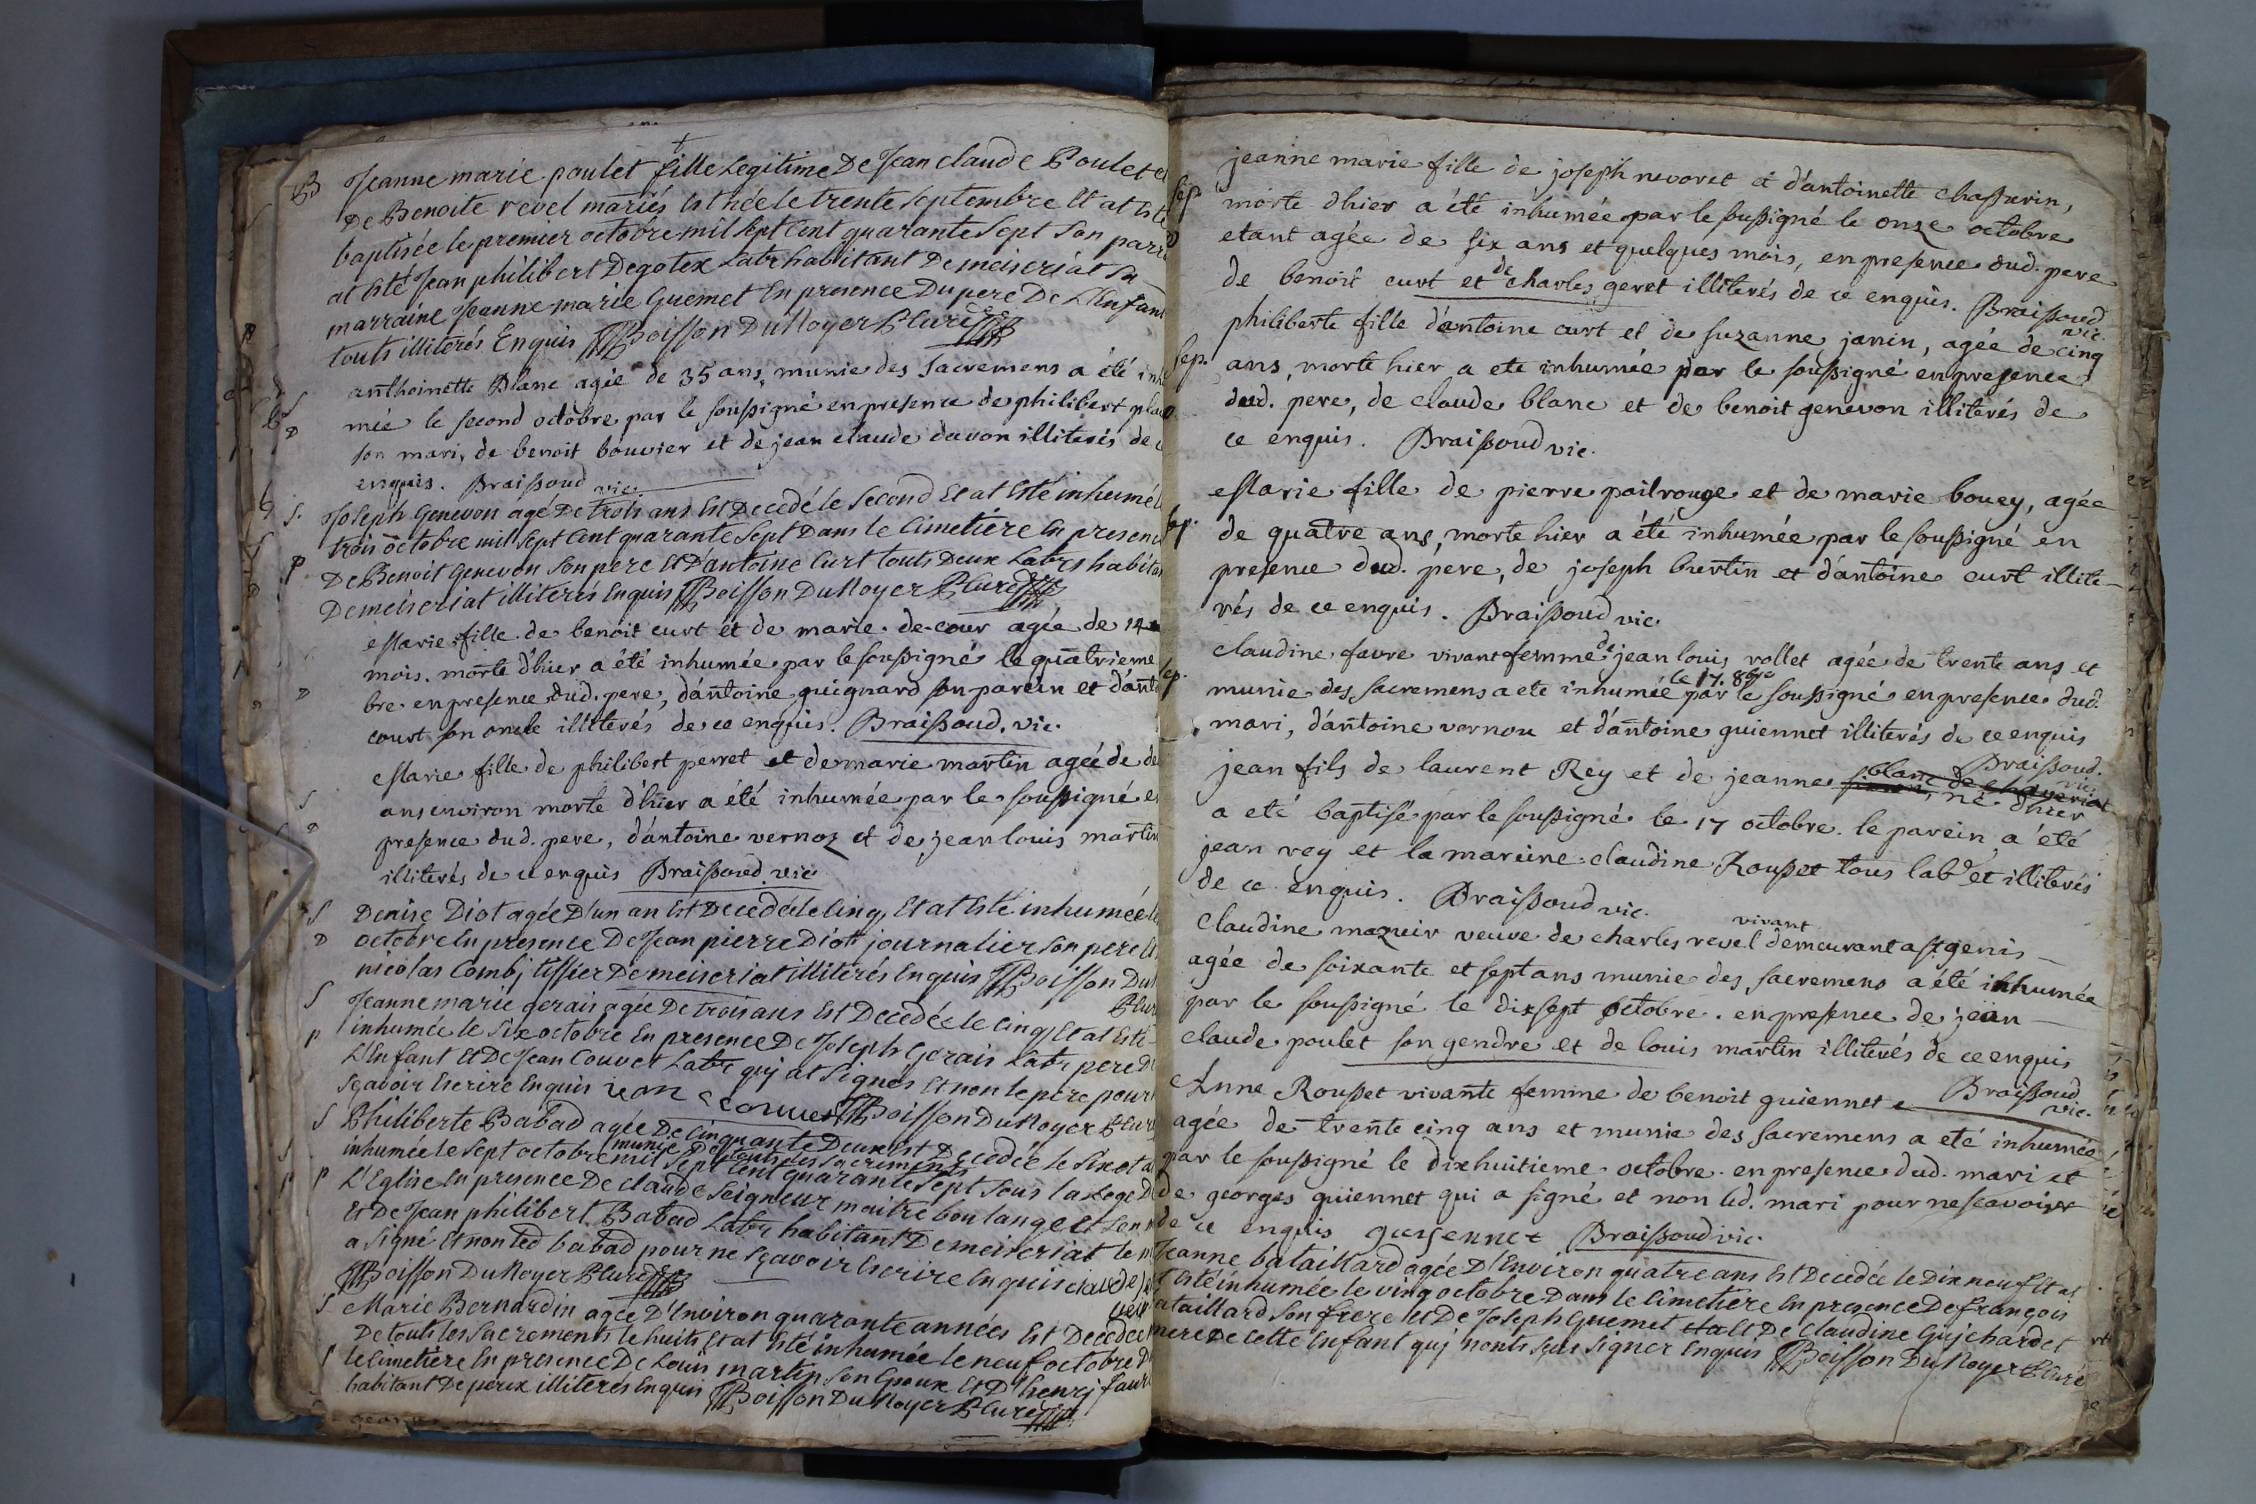 B Jeanne marie poulet fille Legitime De Jean claude Poulet et
De Benoite revel mariés Est néele trente Septembre Et at esté
baptisée le premier octobre mil Sept Cent quarante Sept Son parr
at esté Jean philibert Degotex Labr habitant De meiseriat Sa
marraine Jeanne marie Guemet En presence Du pere De L'Enfant
touts illiterés Enquis Boisson Du Noyer P Curé
anthoinette Blanc agée de 35 ans, munie des Sacremens a été inhu
mée le second octobre par le soussigné en presence de philibert
son mari, de benoit bouvier et de jean claude davon illiterés de
enquis. Braissoud vic.
S. Joseph Genevon agé De trois ans Est Decedé le Second Et at Esté inhumé
trois octobre mil Sept Cent quarante Sept Dans le Cimetière En presence
De Benoit Genevon Son pere Et D'antoine Curt touts Deux Labrs habitan
De meiseriat illiterés Enquis Boisson Du Noyer P Curé
Marie fille de benoit curt et de marie de cour agée de 14
mois, morte d'hier a été inhumée par le soussigné le quatrieme
bre en presence dud. pere, d'antoine guignard son parein et d'anto
court son oncle illiterés de ce enquis. Braissoud. vic.
Marie fille de philibert perret et de marie martin agée de de
ans environ morte d'hier a été inhumée par le soussigné en
presence dud. pere, d'antoine vernoz et de jean louis martin
illiterés de ce enquis Braissoud vic
S Denise Diot agée D'un an Est Decedée le cinq Et at Esté inhumée
D octobre En presence De Jean pierre Diot journalier Son pere
nicolas Combj tissier De meiseriat illiterés Enquis Boisson Du
S Jeanne marie gerais agée De trois ans Est Decedée le cinq Et at Esté
P inhumée le Six octobre En presence De Joseph Gerais Labr pere De
L'Enfant Et De Jean Couvet Labr quj at Signés Et non le pere pour
Sçavoir Escrire Enquis jean couvet Boisson Du Noyer P Cur
S Philiberte Babad agée De cinquante Deux Est Decedée le Six et a
munie De touts les Sacrements
inhumée le Sept octobre mil Sept Cent quarante Sept Sous la
P L'Eglise En presence De claude Seigneur maitre boulanger
Et De Jean philibert Babad Labr habitant De meiseriat le
a Signé Et non led babad pour ne Sçavoir Escrire Enquis claude
Boisson Du Noyer P Curé
S Marie Bernardin agée D'Environ quarante années Est Decedée
De touts les Sacrements le huit Et at Esté inhumée le neuf octobre D
le Cimetiere En presence De Louis martin Son Epoux Et D'henrj faur
habitant De perex illiterés Enquis Boisson Du Noyer P Curé
jeanne marie fille de joseph nevoret et d'antoinette chasserin,
sep. morte dhier a été inhumée par le soussigné le onze octobre
etant agée de six ans et quelques mois, en presence dud. pere
de benoit curt et de charles geret illiterés de ce enquis. Braissoud vic.
philiberte fille d'antoine curt et de suzanne janin, agée de cinq
sep. ans, morte hier a ete inhumée par le soussigné en presence
dud. pere, de claude blanc et de benoit genevon illiterés de
ce enquis. Braissoud vic.
Marie fille de pierre poilrouge et de marie bouey, agée
sep. de quatre ans, morte hier a été inhumée par le soussigné en
presence dud. pere, de joseph burtin et d'antoine curt illite-
rés de ce enquis. Braissoud vic.
claudine favre vivant femme de jean louis vollet agée de trente ans et
le 17. 8bre
sep. munie des sacremens a ete inhumée par le soussigné en presence dud.
mari, d'antoine vernou et d'antoine guiennet illiterés de ce enquis
Braissoud. vic.
jean fils de laurent Rey et de jeanne blanc de chaveriat né dhier
a eté baptisé par le soussigné le 17 octobre. le parein a été
jean rey et la mareine claudine Rousset tous labr et illiterés
de ce enquis. Braissoud vic.
vivant
claudine mazuir veuve de charles revel demeurant a st genis
agée de soixante et sept ans munie des sacremens a été inhumée
par le soussigné le dixsept octobre. en presence de jean
claude poulet son gendre et de louis martin illiterés de ce enquis
Braissoud vic.
Anne Rousset vivante femme de benoit guiennet
agée de trente cinq ans et munie des sacremens a eté inhumée
par le soussigné le dixhuitieme octobre en presence dud. mari et
de georges guiennet qui a signé et non led. mari pour ne scavoir
de ce enquis guyennet Braissoud vic.
Jeanne bataillard agée D'Environ quatre ans Est Decedée le Dix neuf Et at
Esté inhumée le vinq octobre Dans le Cimetiere En presence De françois
bataillard Son frere Et De Joseph Guemet Et De Claudine Gujchardet
mere De cette Enfant quj nonts Sçus Signer Enquis Boisson Du Noyer P Curé